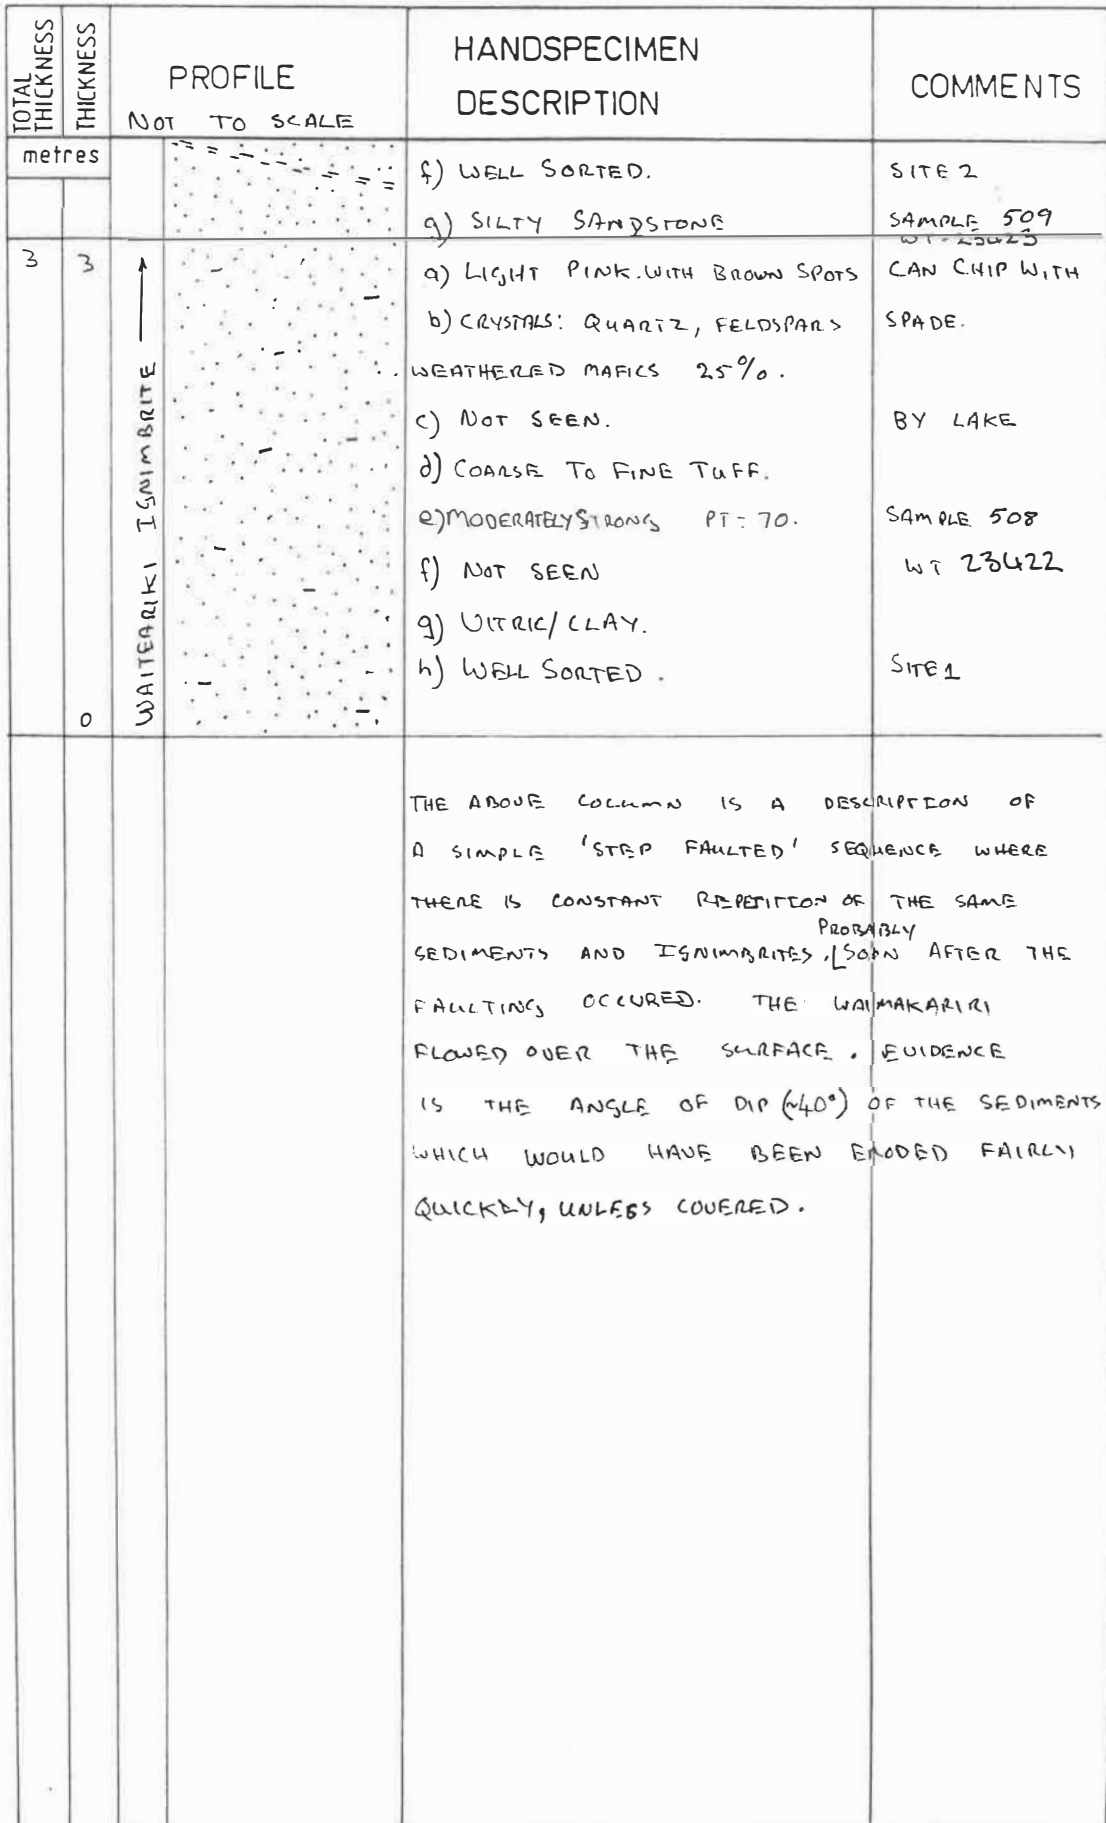 TOTAL THICKNESS
THICKNESS
PROFILE
NOT TO SCALE
HANDSPECIMEN
DESCRIPTION
COMMENTS
metres
f) WELL SORTED.
SITE 2
g) SILTY SANDSTONE
SAMPLE 509
WT-23423
3
3
WAITEARIKI IGNIMBRITE
a) LIGHT PINK. WITH BROWN SPOTS
CAN CHIP WITH
b) CRYSTALS: QUARTZ, FELDSPARS
SPADE.
WEATHERED MAFICS 25%.
c) NOT SEEN.
BY LAKE
d) COARSE TO FINE TUFF.
e) MODERATELY STRONG PT = 70.
SAMPLE 508
f) NOT SEEN
WT 23422
g) VITRIC/CLAY.
h) WELL SORTED.
SITE 1
0
THE ABOVE COLLUMN IS A DESCRIPTION OF
A SIMPLE 'STEP FAULTED' SEQUENCE WHERE
THERE IS CONSTANT REPETITION OF THE SAME
PROBABLY
SEDIMENTS AND IGNIMBRITES. SOON AFTER THE
FAULTING OCCURED. THE WAIMAKARIRI
FLOWED OVER THE SURFACE. EVIDENCE
IS THE ANGLE OF DIP (~40°) OF THE SEDIMENTS
WHICH WOULD HAVE BEEN ERODED FAIRLY
QUICKLY, UNLESS COVERED.